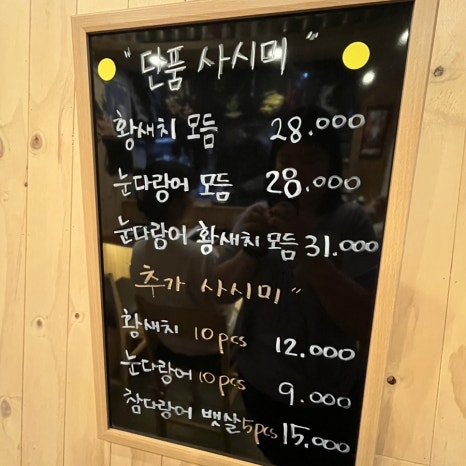 "단품 사시미"
황새치 모듬 28.000
눈다랑어 모듬 28.000
눈다랑어 황새치 모듬 31.000
추가 사시미"
황새치 10pcs 12.000
눈다랑어 10pcs 9.000
참다랑어 뱃살 5pcs 15.000